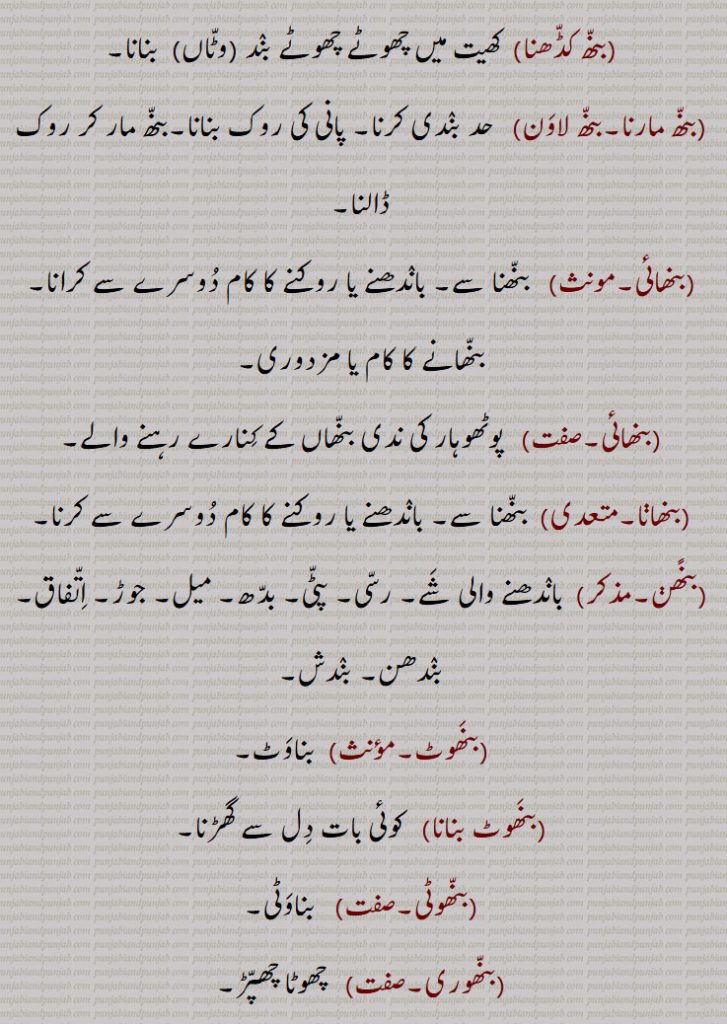 (بنھّ کڈّھنا) کھیت میں چھوٹے چھوٹے بنْد (وٹّاں) بنانا۔
(بنھّ مارنا۔ بنھّ لاوَن) حد بنْدی کرنا۔ پانی کی روک بنانا۔ بنھّ مار کر روک
ڈالنا۔
(بنھائی۔مونث) بنھّنا سے۔ بانْدھنے یا روکنے کا کام دُوسرے سے کرانا۔
بنھّانے کا کام یا مزدوری۔
(بنھائی۔صفت) پوٹھوہار کی ندی بنھّاں کے کِنارے رہنے والے۔
(بنھاݨا۔متعدی) بنھّنا سے۔ بانْدھنے یا روکنے کا کام دُوسرے سے کرنا۔
(بنھّݨ۔مذکر) بانْدھنے والی شَے۔ رسّی۔ پٹّی۔ بدّھ۔ میل۔ جوڑ۔ اِتّفاق۔
بنْدھن۔ بنْدش۔
(بنَھوٹ۔مؤنث) بناوَٹ۔
(بنَھوٹ بنانا) کوئی بات دِل سے گھڑنا۔
(بنھّوٹی۔صفت) بناوَٹی۔
(بنھّوری۔صفت) چھوٹا چھپّڑ۔